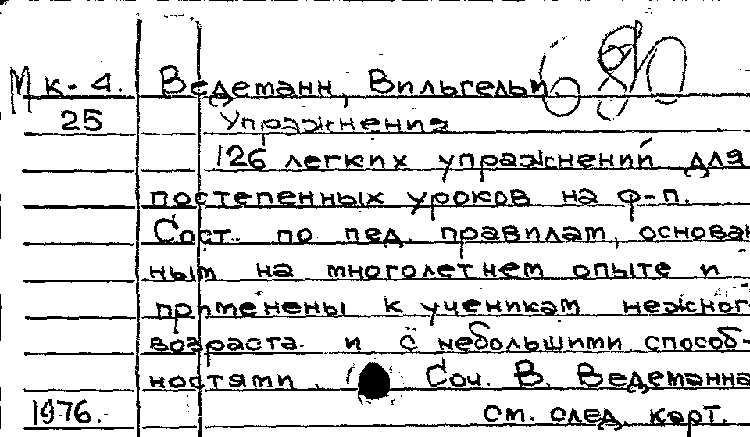 680
МК-4. Ведеманн, Вильгельм
25 Упражнения
126 легких упражнений для
постепенных уроков на ф-п.
Сост. по пед. правилам, основан
ным на многолетнем опыте и
применены к ученикам нежног
возраста и с небольшими способ-
ностями. Соч. В. Ведеманна
1976. См. след. карт.